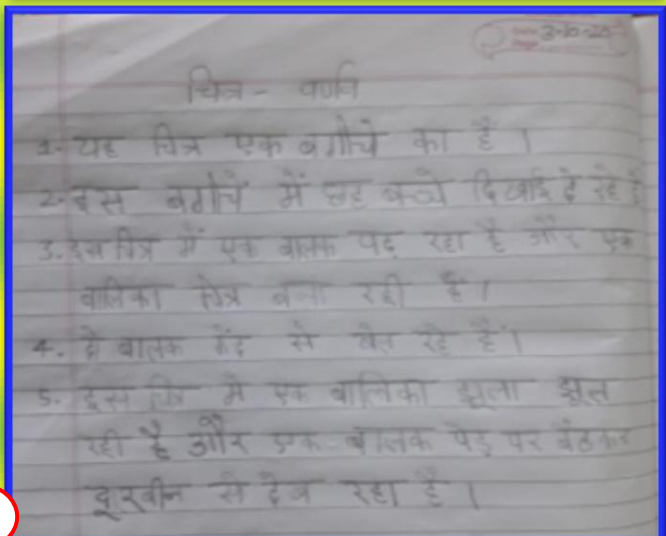 3-10-20
चित्र - वर्णन
1. यह चित्र एक बगीचे का है ।
2. इस बगीचे में छह बच्चे दिखाई दे रहे है
3. इस चित्र में एक बालक पढ़ रहा है और एक
बालिका चित्र बना रही है ।
4. दो बालक गेंद से खेल रहे हैं ।
5. इस चित्र में एक बालिका झूला झूल
रही है और एक बालक पेड़ पर बैठकर
दूरबीन से देख रहा है ।